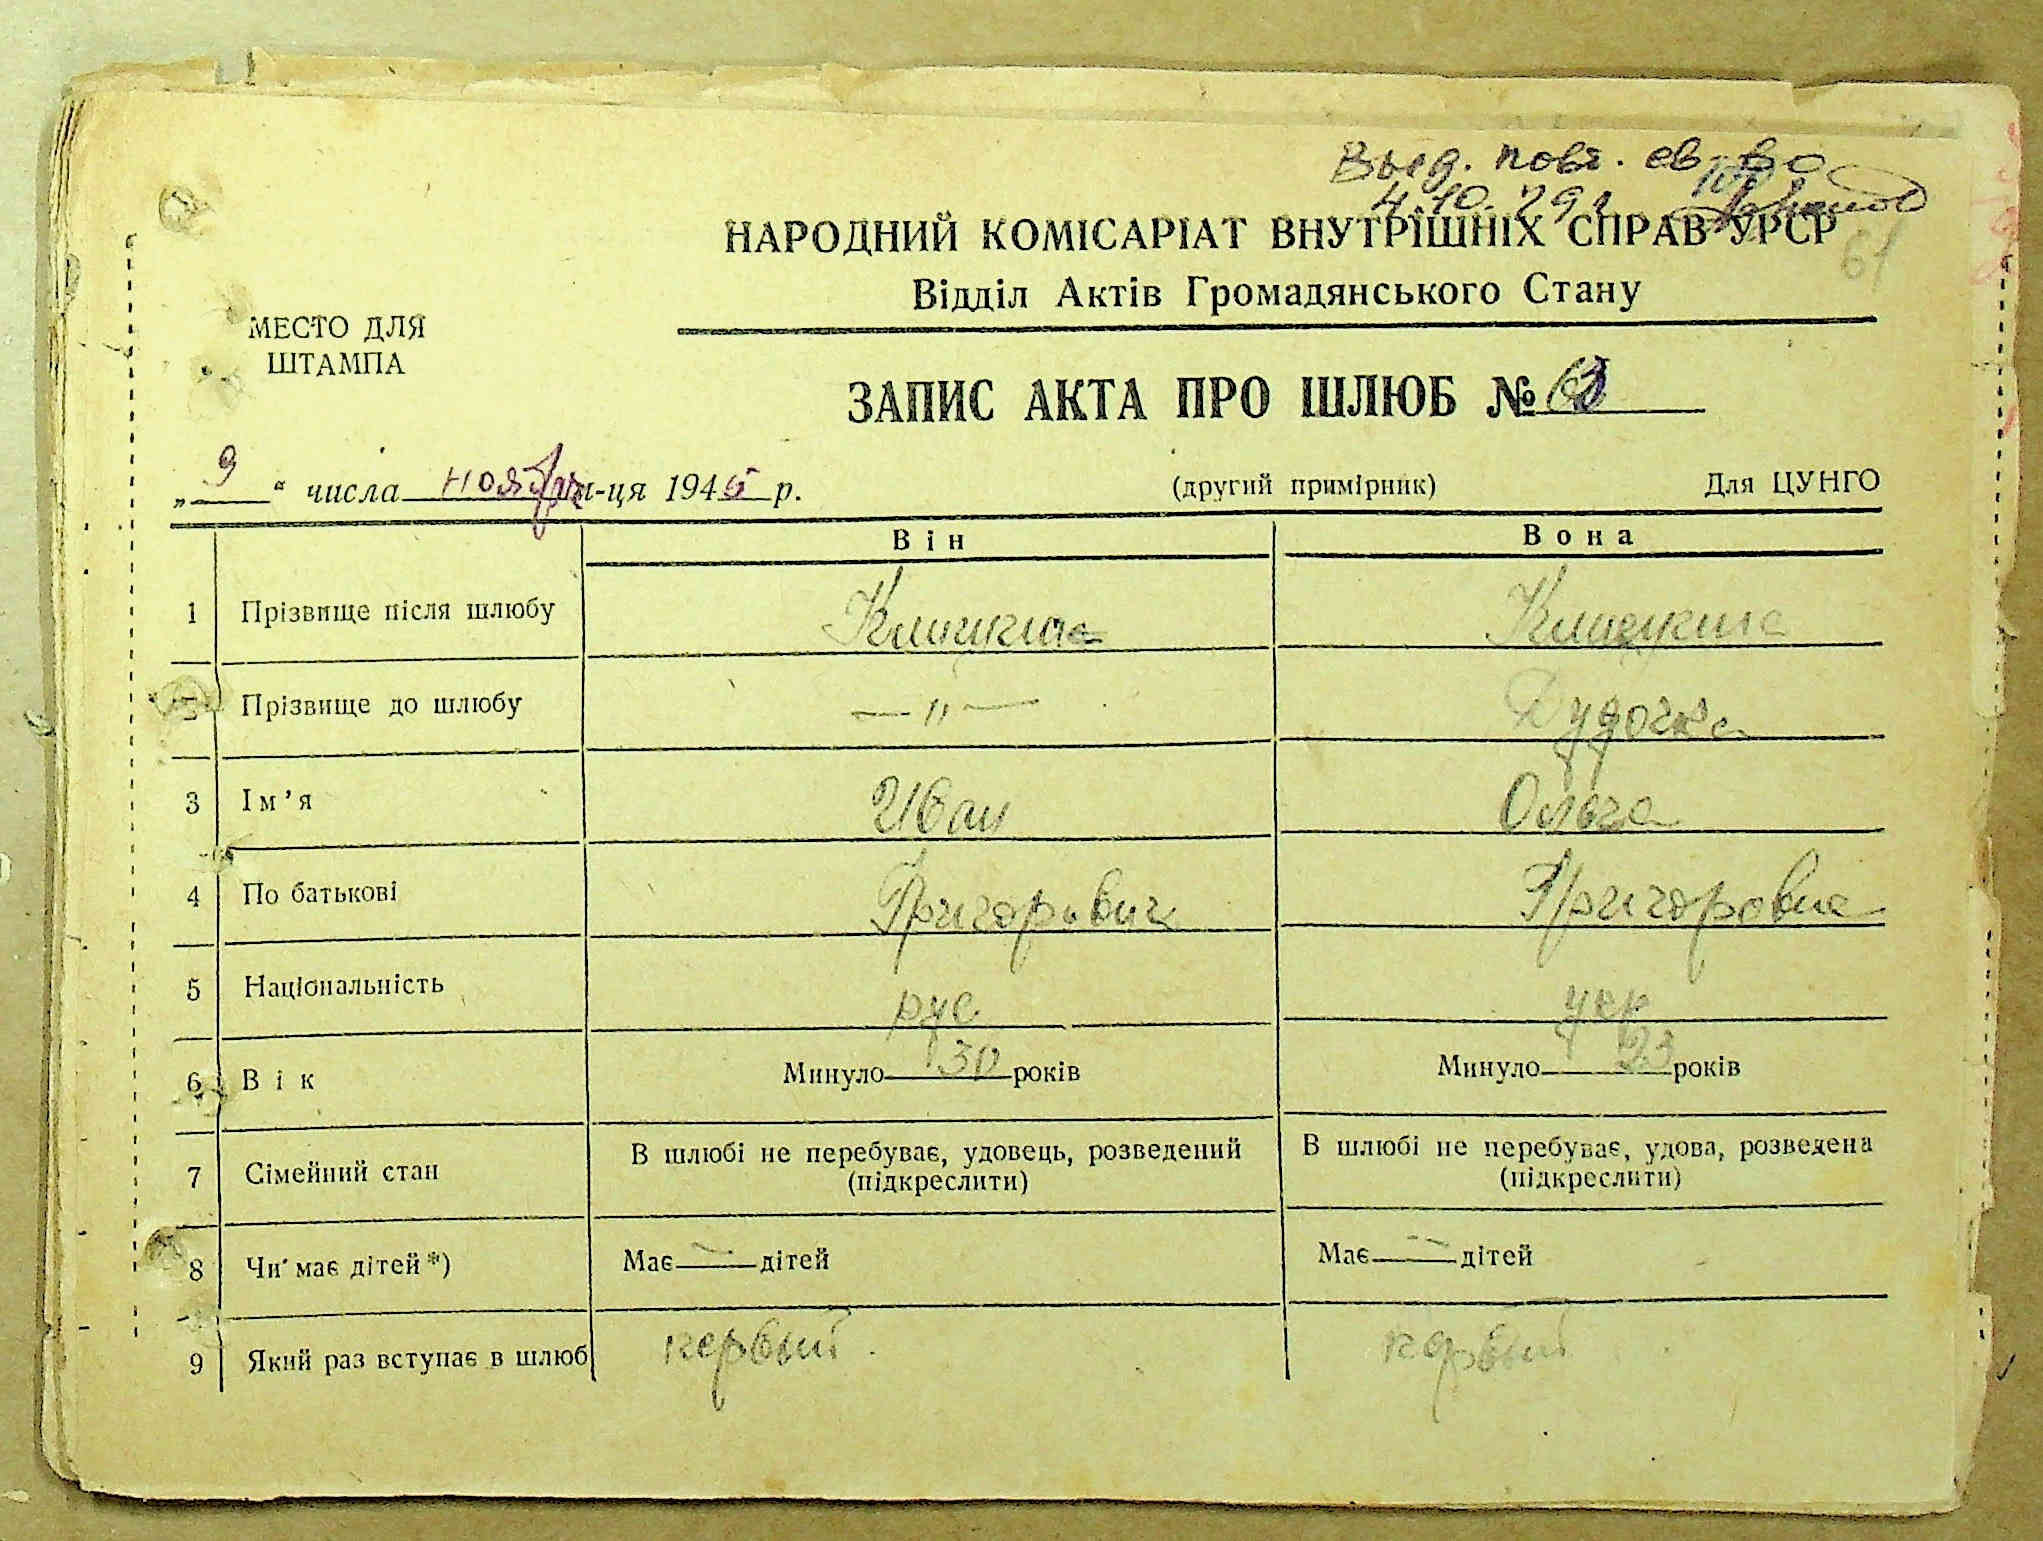 Выд. повт. св-во
4.10.79г
НАРОДНИЙ КОМІСАРІАТ ВНУТРІШНІХ СПРАВ УРСР
61
Відділ Актів Громадянського Стану
МЕСТО ДЛЯ
ШТАМПА
ЗАПИС АКТА ПРО ШЛЮБ №
„ 9 “ числа ноября м-ця 1945 р. (другий примірник) Для ЦУНГО
Він Вона
1 Прізвище після шлюбу
2 Прізвище до шлюбу — " — Дудочка
3 Ім’я Иван Ольга
4 По батькові Григорьевич Григоровна
5 Національність рус укр
6 Вік Минуло 30 років Минуло 23 років
7 Сімейний стан В шлюбі не перебуває, удовець, розведений В шлюбі не перебуває, удова, розведена
(підкреслити) (підкреслити)
8 Чи має дітей *) Має — дітей Має — дітей
9 Який раз вступає в шлюб первый первый